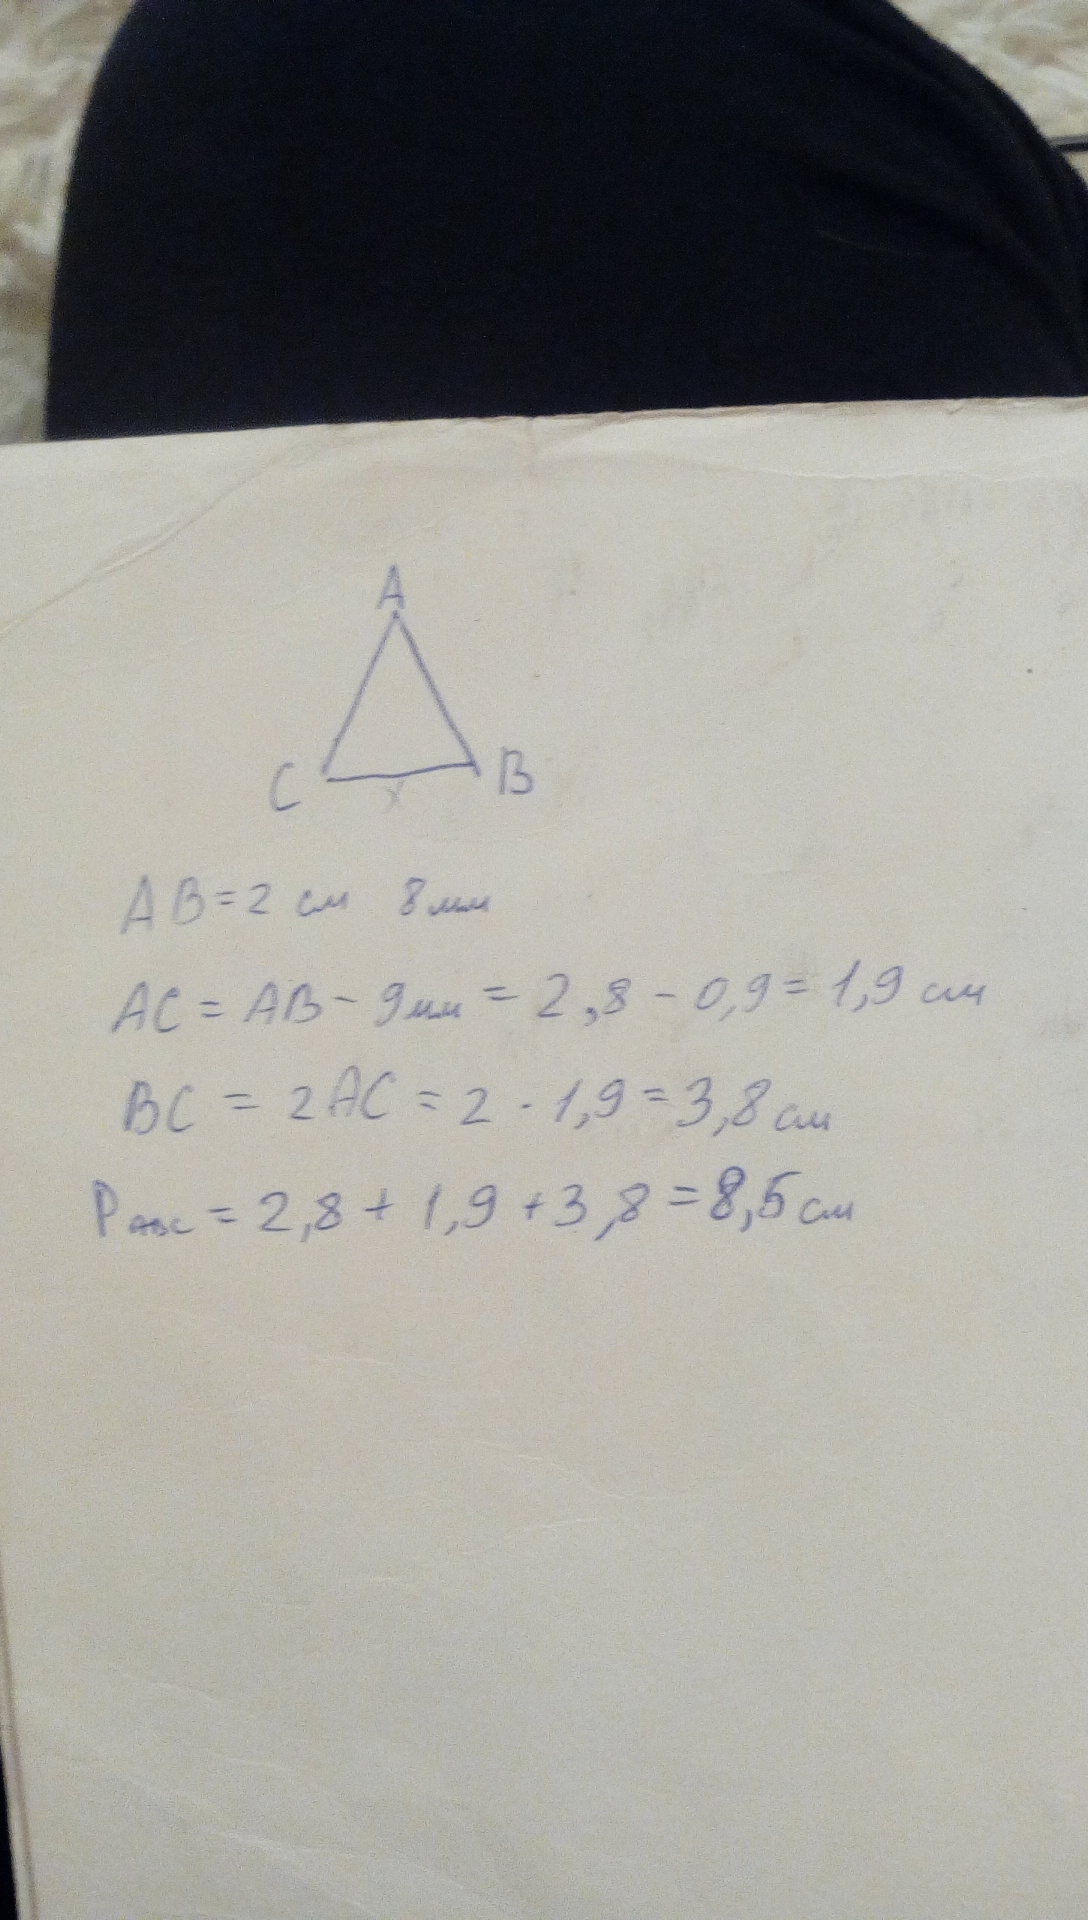 A
C
x
B
AB = 2 см 8 мм
AC = AB - 9 мм = 2,8 - 0,9 = 1,9 см
BC = 2AC = 2 · 1,9 = 3,8 см
Pавс = 2,8 + 1,9 + 3,8 = 8,5 см